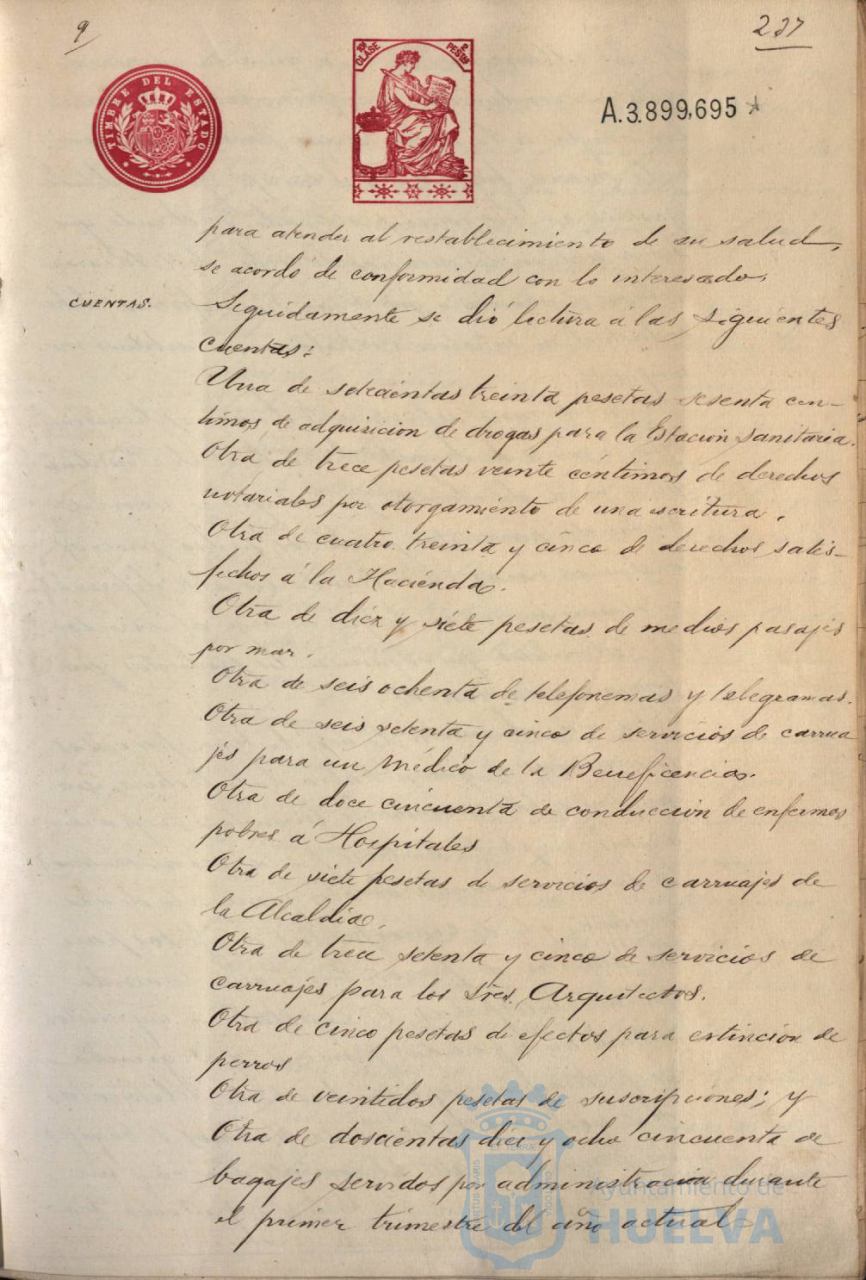 9
237
TIMBRE DEL ESTADO
10ª CLASE 2 PESTAS
A.3.899,695
para atender al restablecimiento de su salud,
se acordó de conformidad con lo interesado.
CUENTAS.
Seguidamente se dió lectura á las siguientes
cuentas:
Una de setecientas treinta pesetas sesenta cen-
timos de adquisicion de drogas para la Estacion sanitaria.
Otra de trece pesetas veinte céntimos de derechos
notariales por otorgamiento de una escritura.
Otra de cuatro treinta y cinco de derechos satis-
fechos á la Hacienda.
Otra de diez y siete pesetas de medios pasajes
por mar.
Otra de seis ochenta de telefonemas y telegramas.
Otra de seis setenta y cinco de servicios de carrua
jes para un Médico de la Beneficencia.
Otra de doce cincuenta de conducción de enfermos
pobres á Hospitales
Otra de siete pesetas de servicios de carruajes de
la Alcaldia.
Otra de trece setenta y cinco de servicios de
carruajes para los Sres. Arquitectos.
Otra de cinco pesetas de efectos para extinción de
perros
Otra de veintidos pesetas de suscripciones; y
Otra de doscientas diez y ocho cincuenta de
bagajes servidos por administracion durante
el primer trimestre del año actual.
Ayuntamiento de
HUELVA